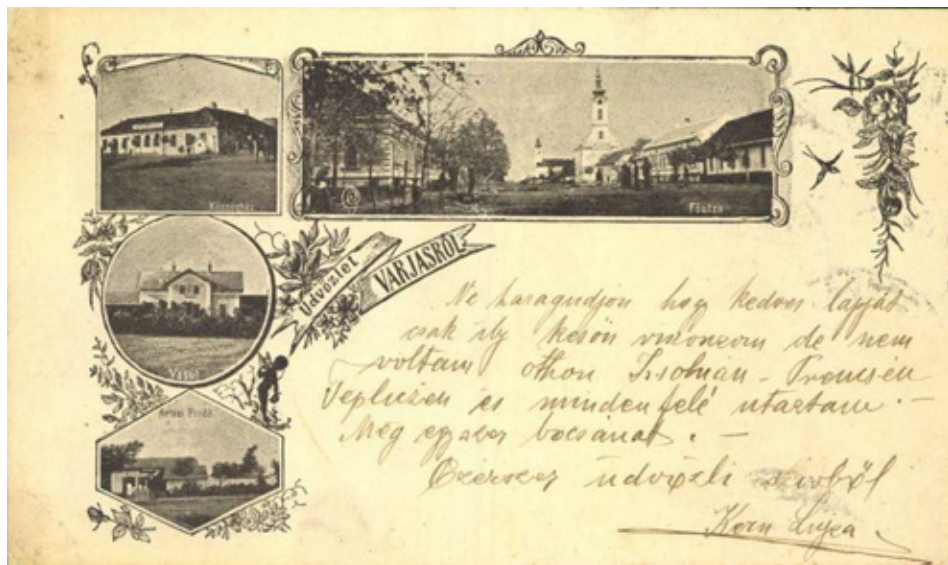 Községház
Főutca
Üdvözlet
VARJASRÓL
Artézi Fürdő
Ne haragudjon hogy kedves lapját
csak ily későn viszonzom de nem
voltam othon Trencsén
Tepliczen és mindenfelé utaztam. –
Még egyszer bocsánat. –
Ezerszer üdvözli szívből
Korn